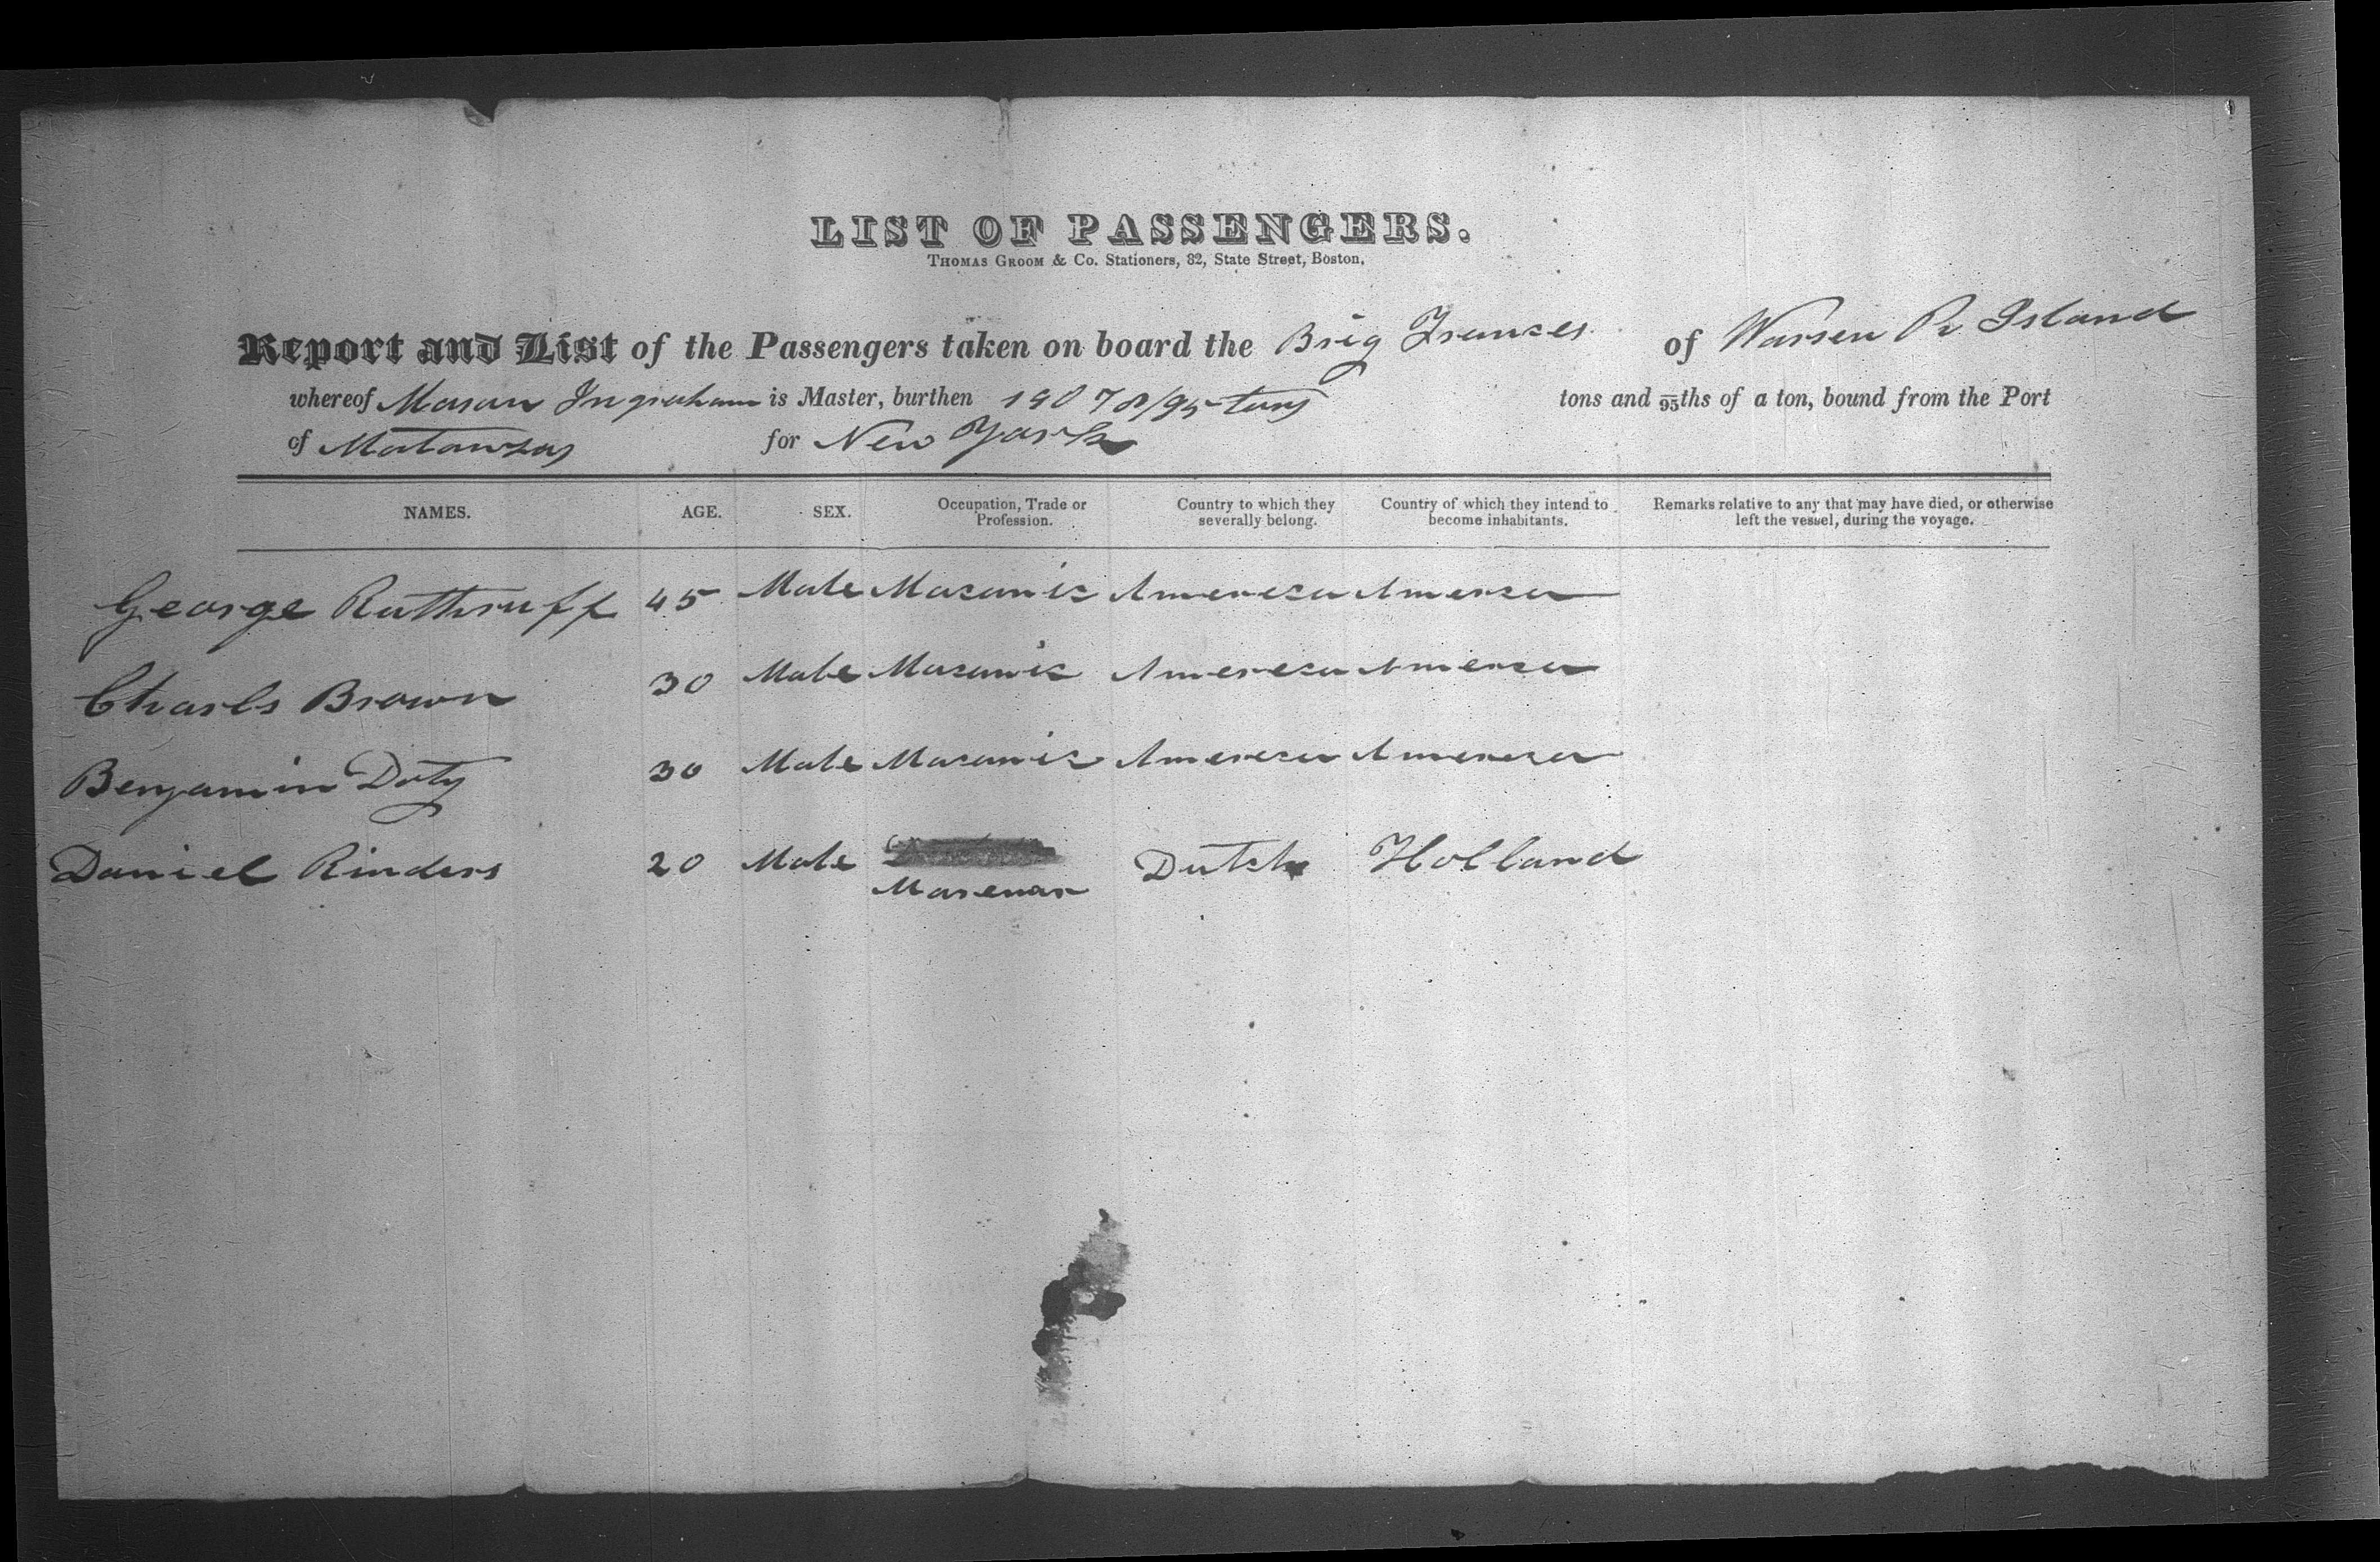 LIST OF PASSENGERS.
THOMAS GROOM & Co. Stationers, 82, State Street, Boston.
Report and List of the Passengers taken on board the Brig Frances of Warren R Island
whereof Mason Ingraham is Master, burthen 190 78/95 tuns tons and 95ths of a ton, bound from the Port
of Matanzas for New York
NAMES. AGE. SEX. Occupation, Trade or Profession. Country to which they severally belong. Country of which they intend to become inhabitants. Remarks relative to any that may have died, or otherwise left the vessel, during the voyage.
George Ruthruff 45 Male Macanic America America
Charls Brown 30 Male Macanic America America
Benjamin Doty 30 Male Macanic America America
Daniel Rinders 20 Male Marenar Dutch Holland